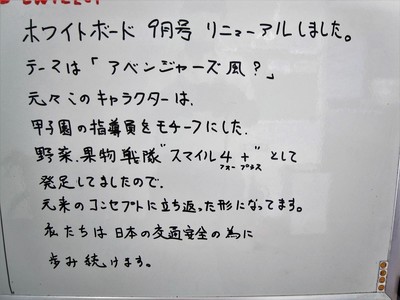 ホワイトボード 9月号 リニューアルしました。
テーマは「アベンジャーズ風?」
元々このキャラクターは、
甲子園の指導員をモチーフにした、
野菜、果物戦隊"スマイル4+"として
フォー プラス
発足してましたので、
元来のコンセプトに立ち返った形になってます。
私たちは日本の交通安全の為に
歩み続けます。